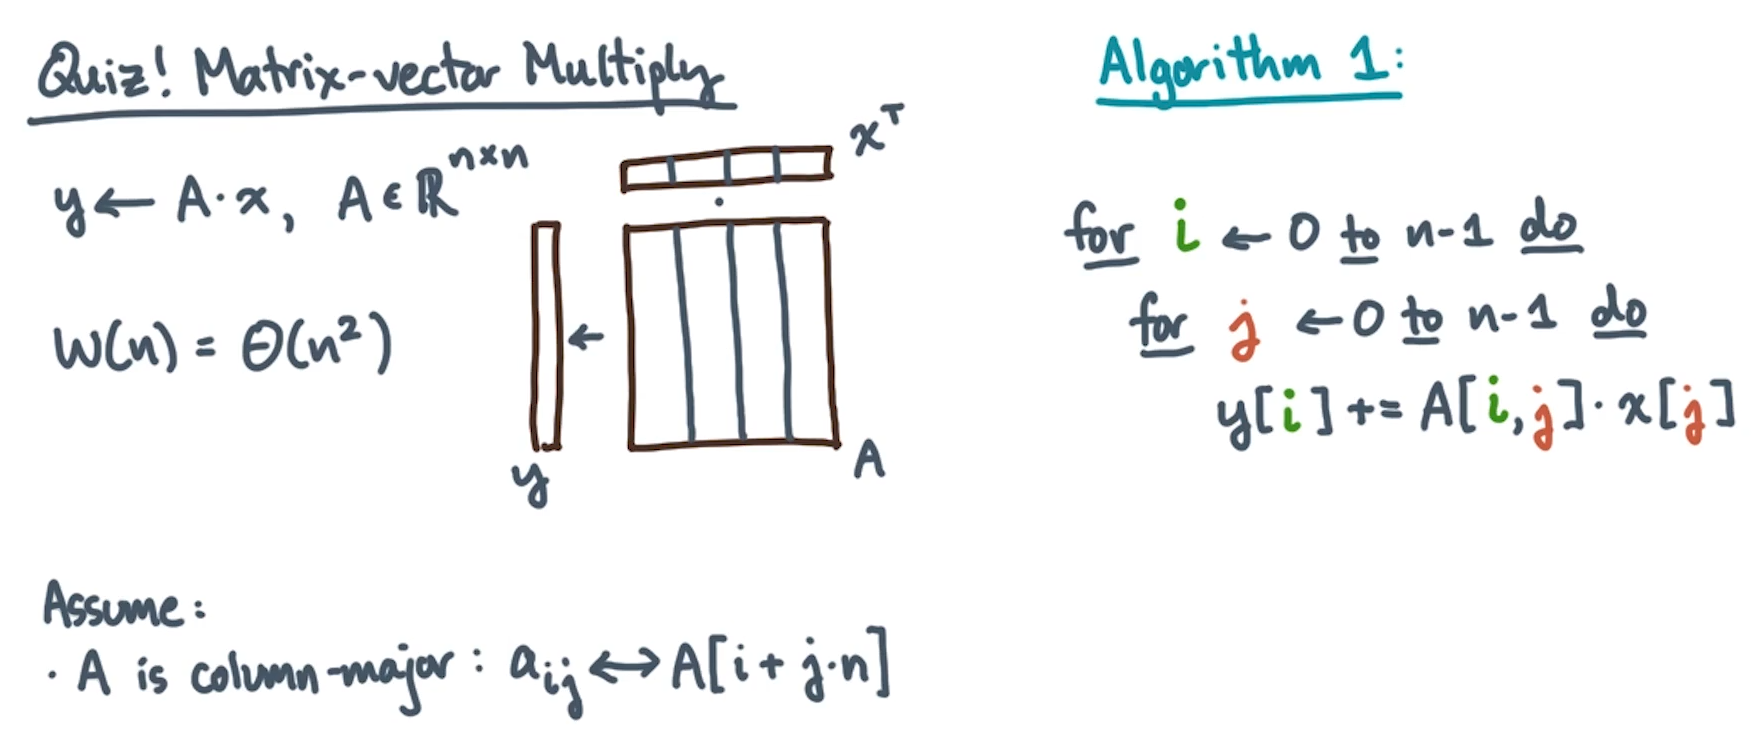 Quiz! Matrix-vector Multiply
y ← A·x, A ∈ ℝⁿˣⁿ
W(n) = Θ(n²)
xᵀ
·
←
y
A
Assume:
· A is column-major: aᵢⱼ ↔ A[i + j·n]
Algorithm 1:
for i ← 0 to n-1 do
for j ← 0 to n-1 do
y[i] += A[i,j]·x[j]